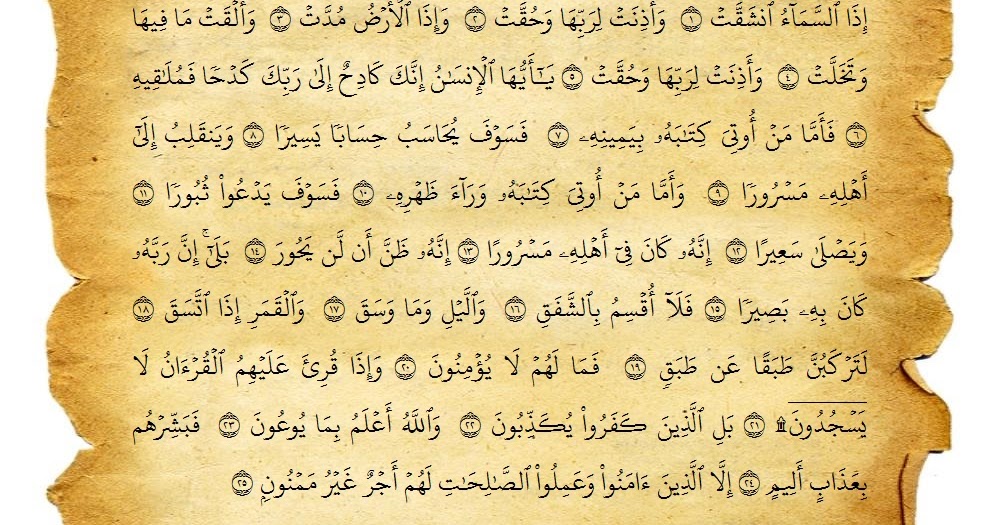 إِذَا ٱلسَّمَآءُ ٱنشَقَّتۡ ١ وَأَذِنَتۡ لِرَبِّهَا وَحُقَّتۡ ٢ وَإِذَا ٱلۡأَرۡضُ مُدَّتۡ ٣ وَأَلۡقَتۡ مَا فِيهَا
وَتَخَلَّتۡ ٤ وَأَذِنَتۡ لِرَبِّهَا وَحُقَّتۡ ٥ يَـٰٓأَيُّهَا ٱلۡإِنسَـٰنُ إِنَّكَ كَادِحٌ إِلَىٰ رَبِّكَ كَدۡحٗا فَمُلَـٰقِيهِ
٦ فَأَمَّا مَنۡ أُوتِيَ كِتَـٰبَهُۥ بِيَمِينِهِۦ ٧ فَسَوۡفَ يُحَاسَبُ حِسَابٗا يَسِيرٗا ٨ وَيَنقَلِبُ إِلَىٰٓ
أَهۡلِهِۦ مَسۡرُورٗا ٩ وَأَمَّا مَنۡ أُوتِيَ كِتَـٰبَهُۥ وَرَآءَ ظَهۡرِهِۦ ١٠ فَسَوۡفَ يَدۡعُواْ ثُبُورٗا ١١
وَيَصۡلَىٰ سَعِيرًا ١٢ إِنَّهُۥ كَانَ فِيٓ أَهۡلِهِۦ مَسۡرُورًا ١٣ إِنَّهُۥ ظَنَّ أَن لَّن يَحُورَ ١٤ بَلَىٰٓۚ إِنَّ رَبَّهُۥ
كَانَ بِهِۦ بَصِيرٗا ١٥ فَلَآ أُقۡسِمُ بِٱلشَّفَقِ ١٦ وَٱلَّيۡلِ وَمَا وَسَقَ ١٧ وَٱلۡقَمَرِ إِذَا ٱتَّسَقَ ١٨
لَتَرۡكَبُنَّ طَبَقًا عَن طَبَقٖ ١٩ فَمَا لَهُمۡ لَا يُؤۡمِنُونَ ٢٠ وَإِذَا قُرِئَ عَلَيۡهِمُ ٱلۡقُرۡءَانُ لَا
يَسۡجُدُونَ۩ ٢١ بَلِ ٱلَّذِينَ كَفَرُواْ يُكَذِّبُونَ ٢٢ وَٱللَّهُ أَعۡلَمُ بِمَا يُوعُونَ ٢٣ فَبَشِّرۡهُم
بِعَذَابٍ أَلِيمٍ ٢٤ إِلَّا ٱلَّذِينَ ءَامَنُواْ وَعَمِلُواْ ٱلصَّـٰلِحَـٰتِ لَهُمۡ أَجۡرٌ غَيۡرُ مَمۡنُونِۭ ٢٥